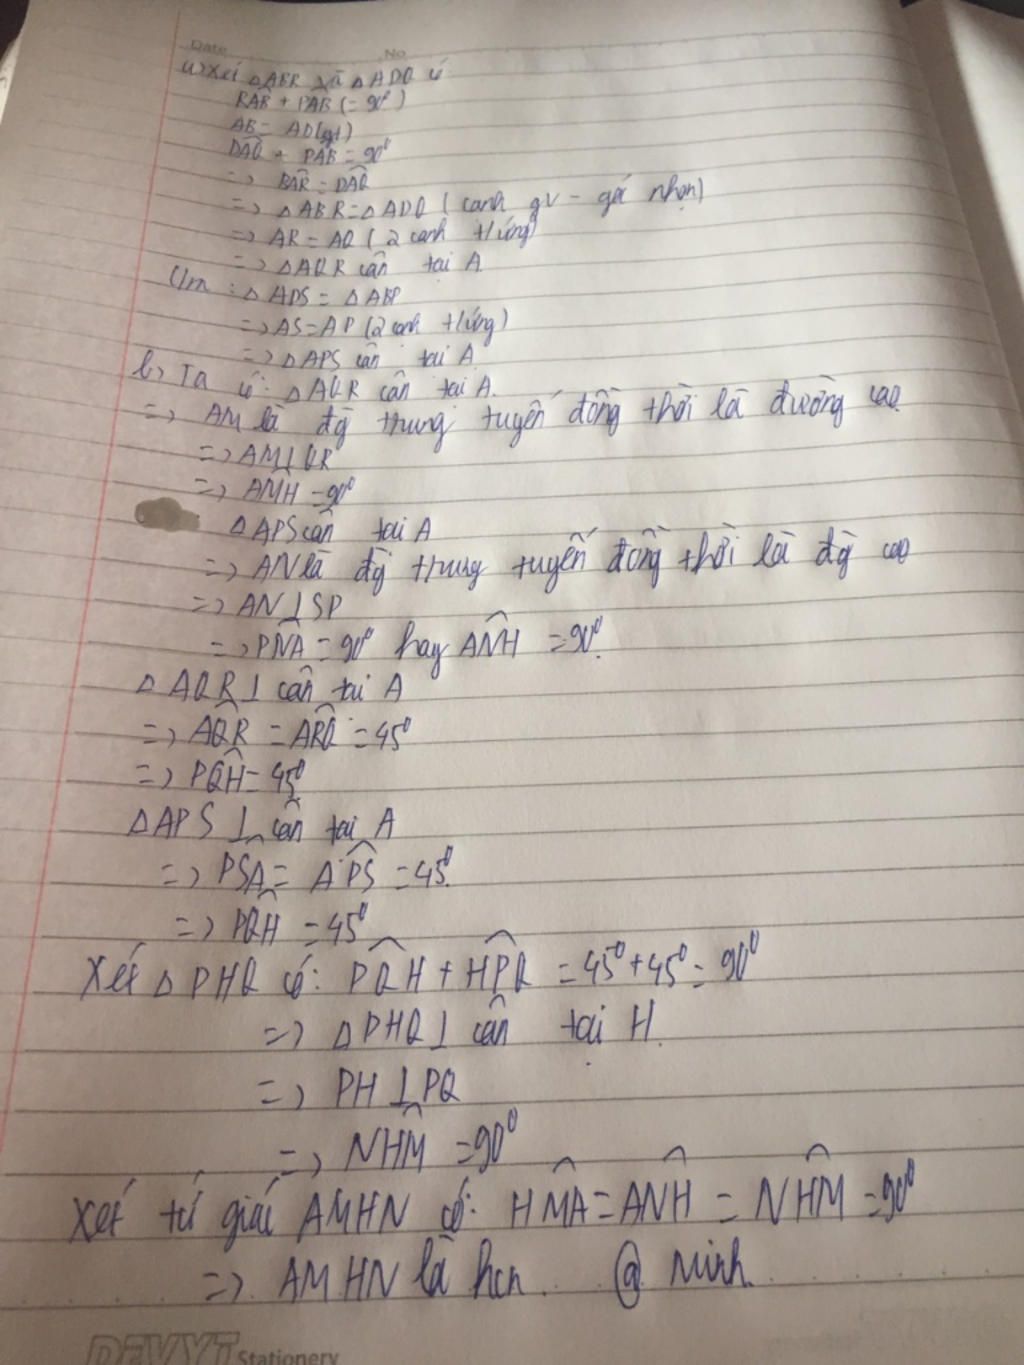 Date No
a) Xét △ABR và △ADQ có
RAB̂ + PAB̂ (= 90⁰)
AB = AD(gt)
DAQ̂ + PAB̂ = 90⁰
=> BAR̂ = DAQ̂
=> △ABR = △ADQ ( canh gv - góc nhọn)
=> AR = AQ ( 2 canh t/ứng)
=> △AQR cân tại A
C/m : △ADS = △ABP
=> AS = AP (2 canh t/ứng)
=> △APS cân tại A
b, Ta có: △AQR cân tại A.
=> AM là đg trung tuyến đồng thời là đường cao
=> AM⊥QR
=> AMĤ = 90⁰
△APS cân tại A
=> AN là đg trung tuyến đồng thời là đg cao
=> AN⊥SP
=> PNÂ = 90⁰ hay ANĤ = 90⁰.
△AQR⊥ cân tại A
=> AQR̂ = ARQ̂ = 45⁰
=> PQĤ = 45⁰
△APS ⊥ cân tại A
=> PSÂ = APŜ = 45⁰.
=> PQĤ = 45⁰
Xét △PHQ có: PQĤ + HPQ̂ = 45⁰+45⁰= 90⁰
=> △PHQ⊥ cân tại H.
=> PH ⊥PQ
=> NHM̂ = 90⁰
Xét tứ giác AMHN có: HMÂ = ANĤ = NHM̂ = 90⁰
=> AMHN là hcn. @ Ninh.
DEVYT Stationery